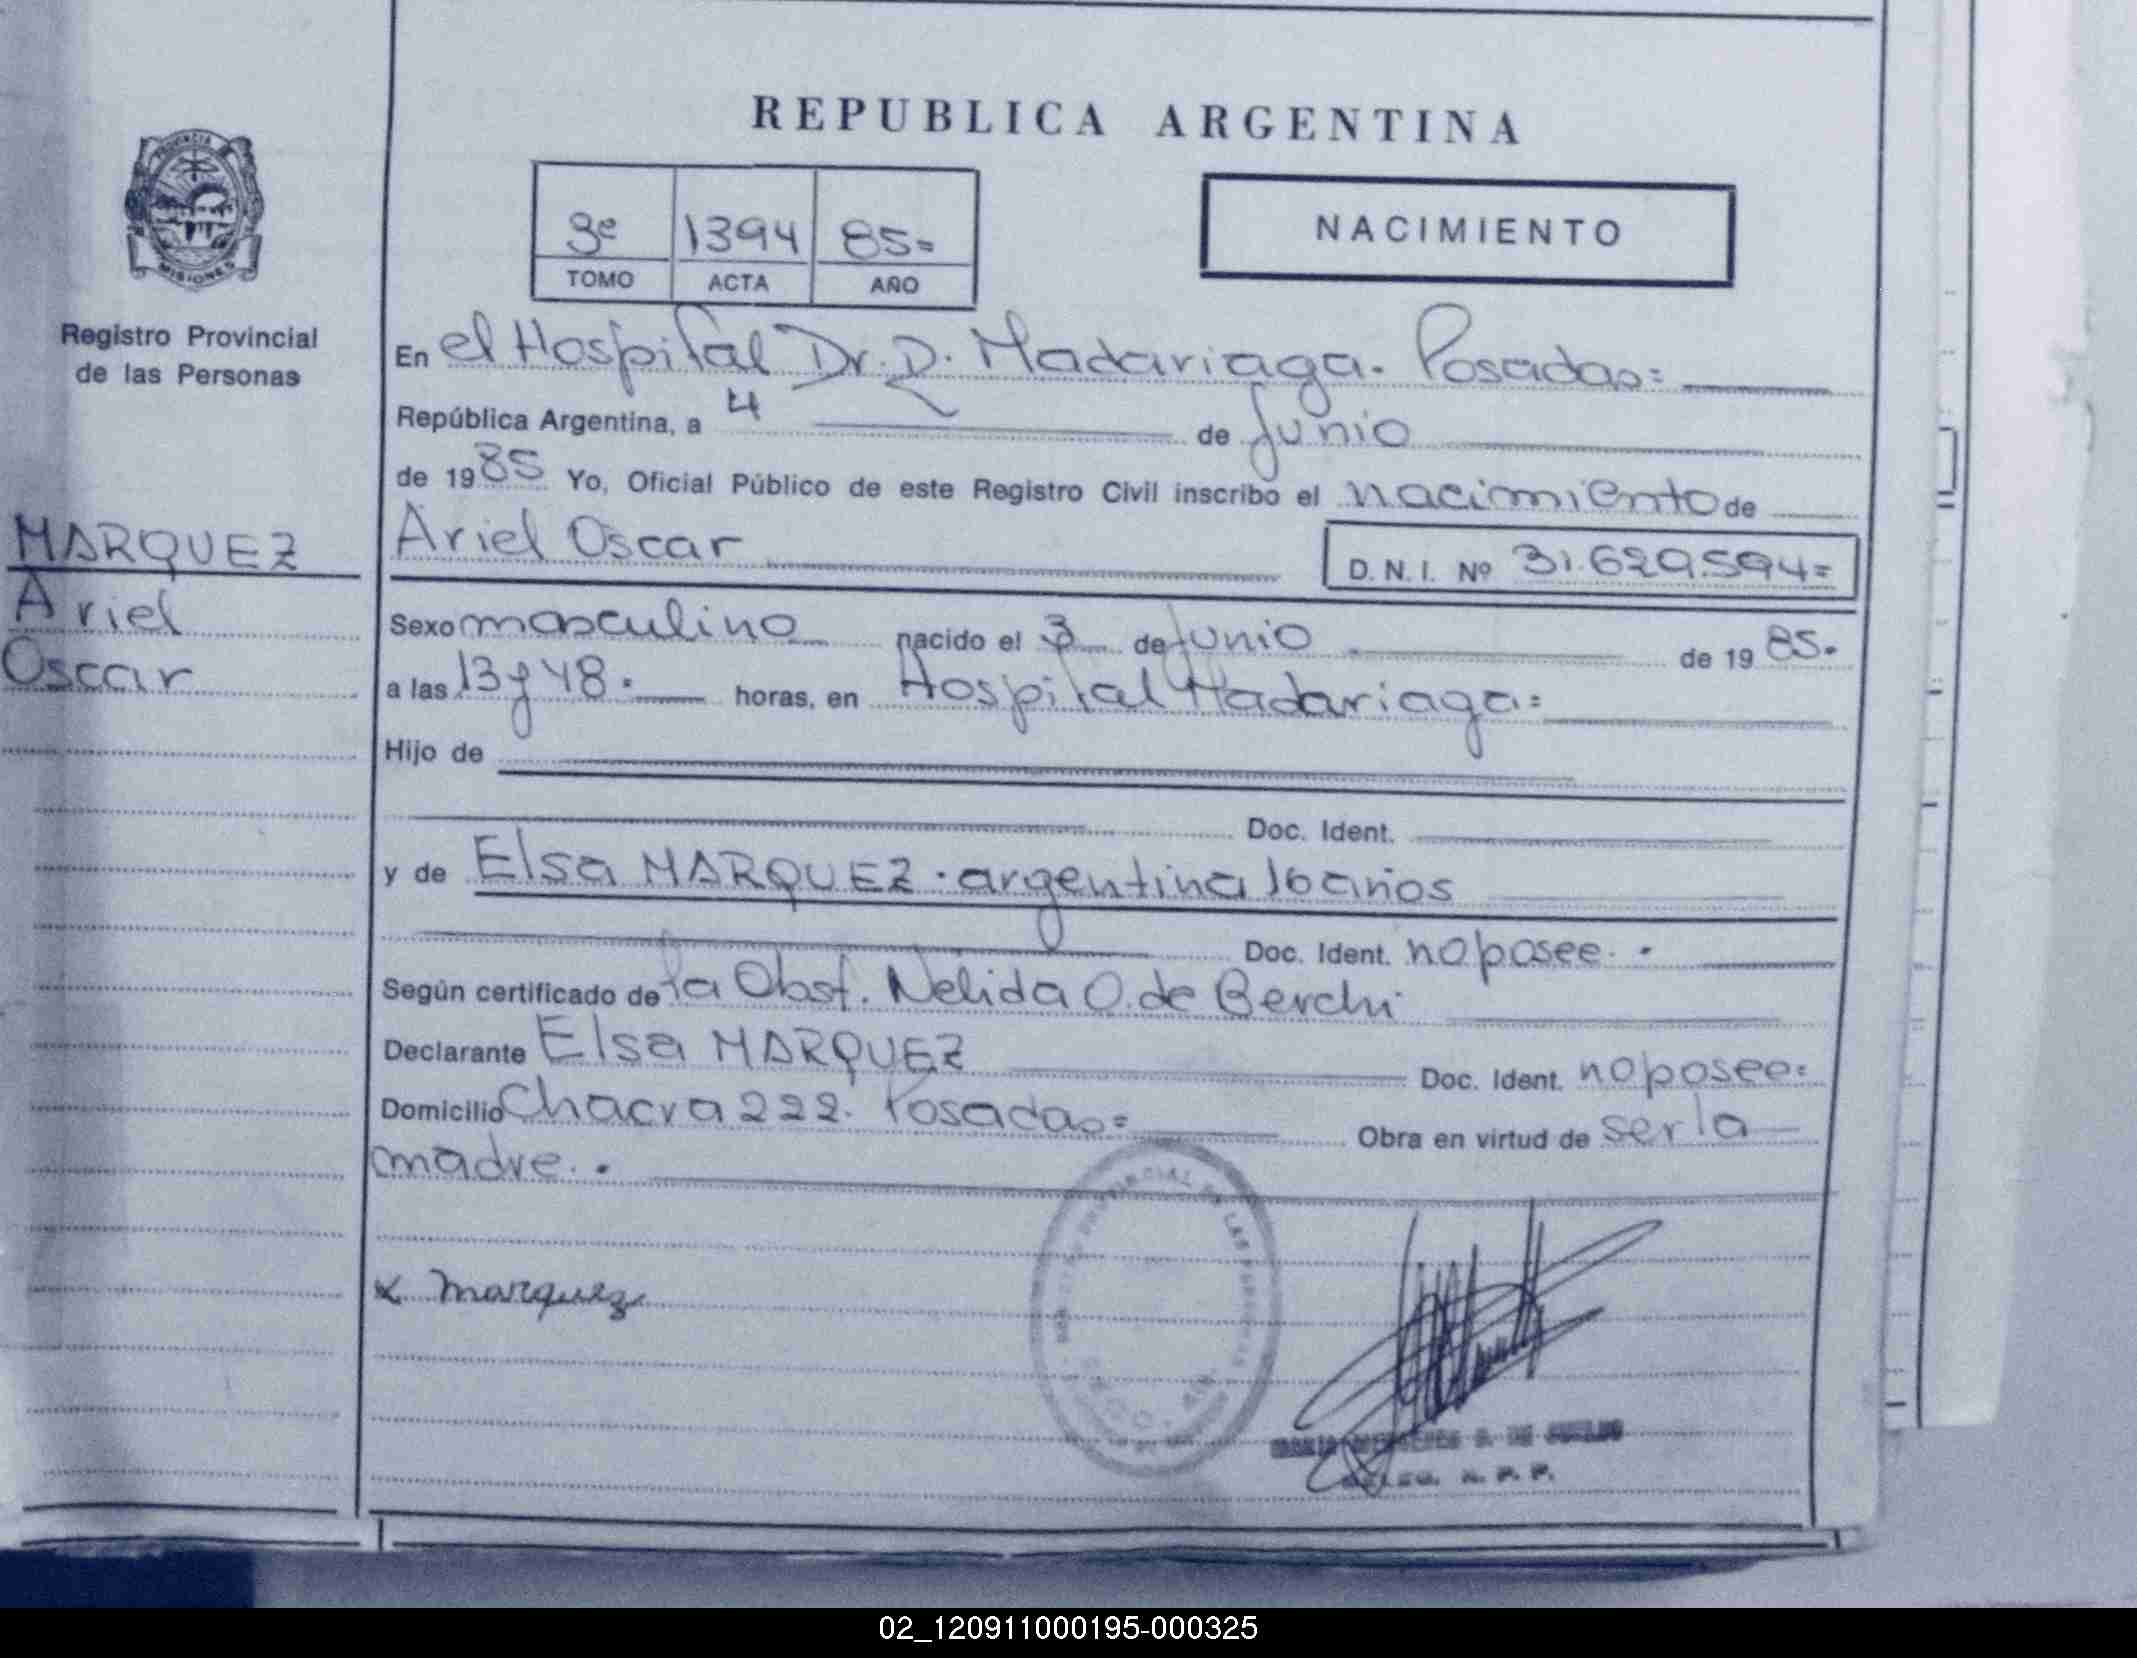 REPUBLICA ARGENTINA
PROVINCIA DE
MISIONES
Registro Provincial
de las Personas
3º 1394 85=
TOMO ACTA AÑO
NACIMIENTO
En el Hospital Dr. R. Madariaga. Posadas=
República Argentina, a 4 de Junio
de 1985 Yo, Oficial Público de este Registro Civil inscribo el nacimiento de
MARQUEZ
Ariel
Oscar
Ariel Oscar D.N.I. Nº 31.629.594=
Sexo masculino nacido el 3 de Junio de 19 85.
a las 13 y 48. horas, en Hospital Madariaga=
Hijo de
Doc. Ident.
y de Elsa MARQUEZ. argentina 16 años
Doc. Ident. no posee.
Según certificado de la Obst. Nelida O. de Berchi
Declarante Elsa MARQUEZ Doc. Ident. no posee=
Domicilio Chacra 222. Posadas= Obra en virtud de ser la
madre.
x marquez
PROVINCIAL DE LAS PERSONAS
02_120911000195-000325